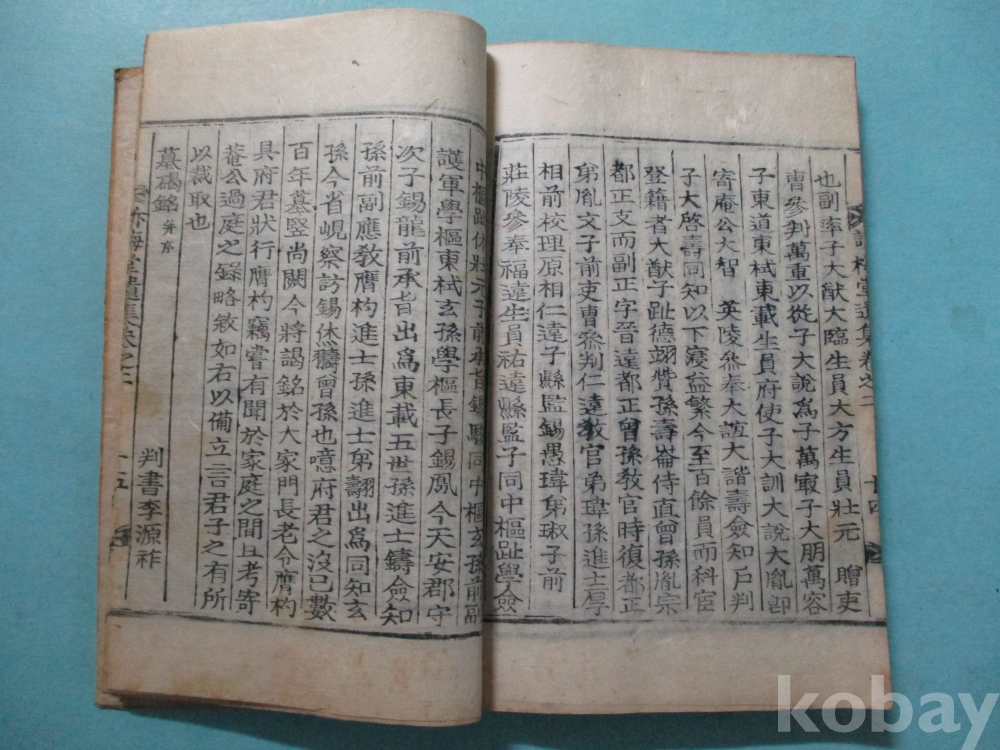 也副率子大猷大臨生員大方生員壯元 贈吏
曹參判萬重以從子大說爲子萬㝡子大朋萬容
子東道東栻東載生員府使子大訓大說大胤郎
寄庵公大智 英陵參奉大諠大諧壽僉知戶判
子大啓壽同知以下寖益繁今至百餘員而科宦
登籍者大猷子趾德翊贊孫壽崙侍直曾孫胤宗
都正文而副正字晉達都正曾孫敎官時復都正
第胤文子前吏曹參判仁達敎官弟瑋孫進士厚
相前校理原相仁達子縣監錫愚瑋第琡子前
莊陵參奉福達生員祐達縣監子同中樞趾學僉
中樞趾休壯元子前承旨錫駿同中樞玄孫前副
護軍學樞東栻玄孫學樞長子錫鳳今天安郡守
次子錫龍前承旨出爲東載五世孫進士鑄僉知
孫前副應敎膺杓進士孫進士第翿出爲同知玄
孫今省峴察訪錫烋曾孫也噫府君之沒已數
百年墓竪尚闕今將謁銘於大家門長老令膺杓
具府君狀行膺杓竊嘗有聞於家庭之間且考寄
菴公過庭之錄略敘如右以備立言君子之有所
以裁取也
墓碣銘 并序
判書李源祚
卷之二
十四
十五
kobay